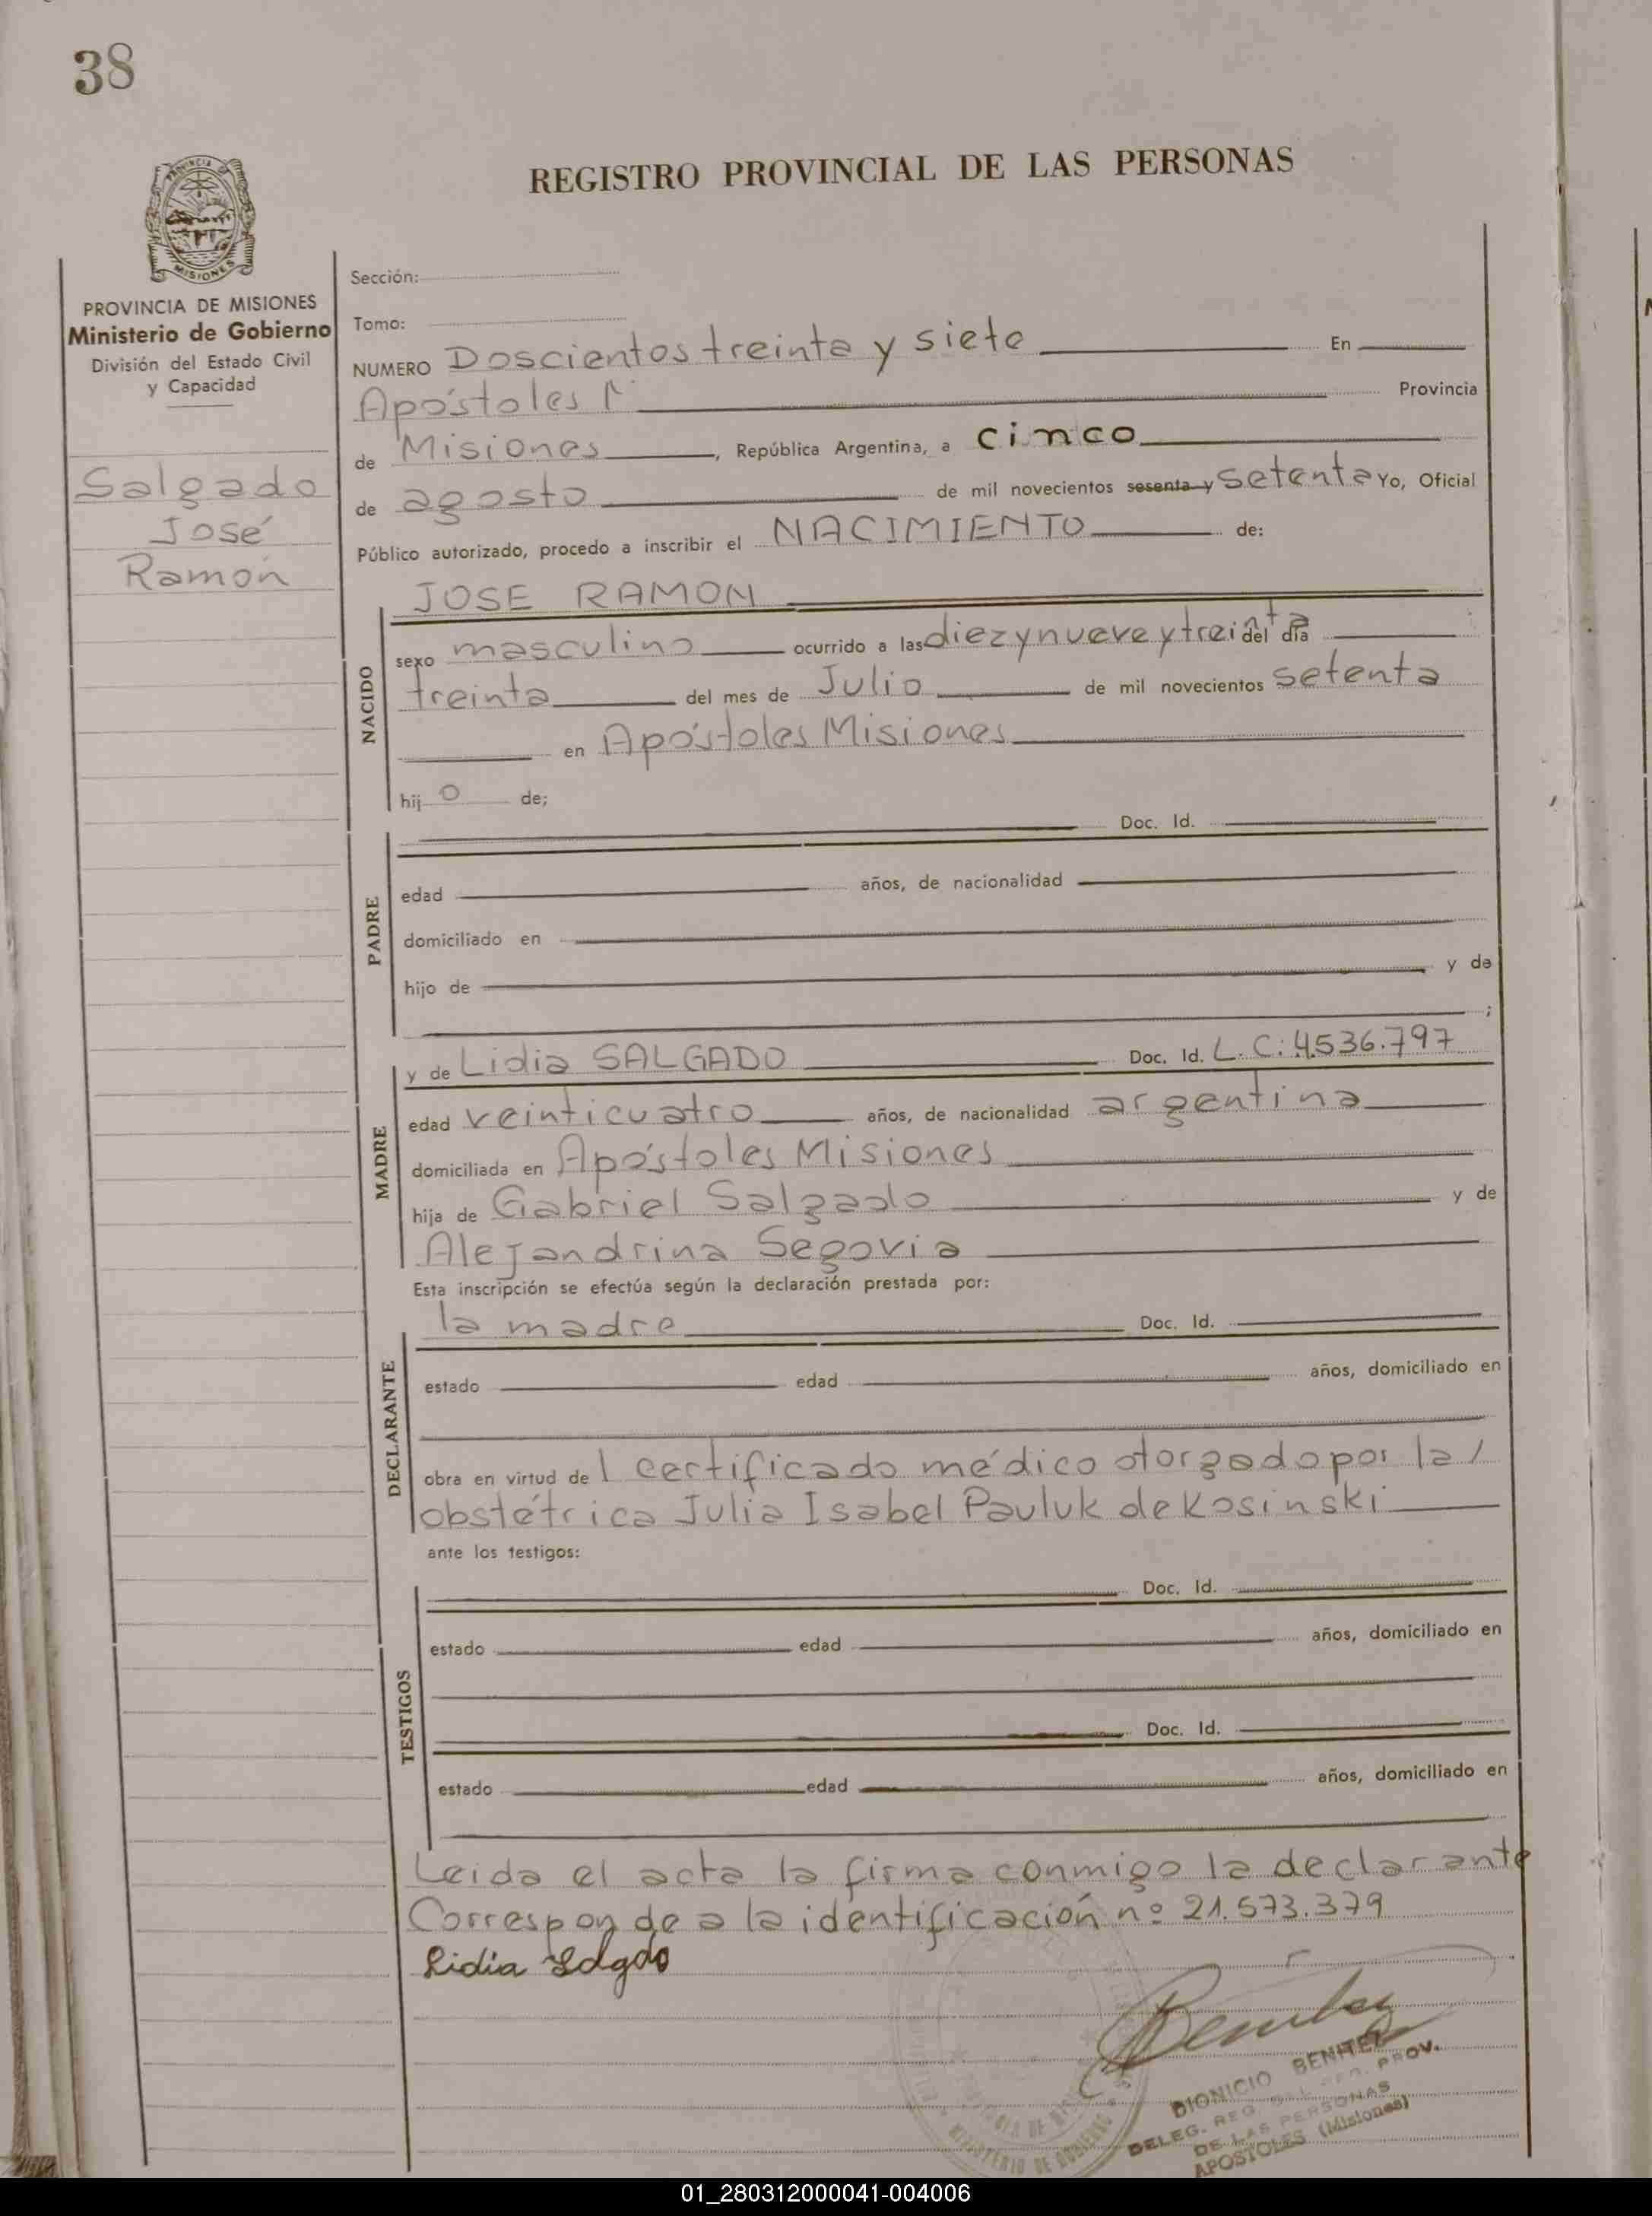 38
PROVINCIA
MISIONES
REGISTRO PROVINCIAL DE LAS PERSONAS
PROVINCIA DE MISIONES
Ministerio de Gobierno
División del Estado Civil
y Capacidad
Salgado
José
Ramón
Sección:
Tomo:
NUMERO Doscientos treinta y siete En
Apóstoles Provincia
de Misiones, República Argentina, a cinco
de agosto de mil novecientos sesenta y setenta Yo, Oficial
Público autorizado, procedo a inscribir el NACIMIENTO de:
NACIDO
JOSE RAMON
sexo masculino ocurrido a las diez y nueve y treinta del día
treinta del mes de Julio de mil novecientos setenta
en Apóstoles Misiones
hij o de;
PADRE
Doc. Id.
edad años, de nacionalidad
domiciliado en
hijo de y de
;
MADRE
y de Lidia SALGADO Doc. Id. L. C: 4.536.797
edad veinticuatro años, de nacionalidad argentina
domiciliada en Apóstoles Misiones
hija de Gabriel Salgado y de
Alejandrina Segovia
Esta inscripción se efectúa según la declaración prestada por:
DECLARANTE
la madre Doc. Id.
estado edad años, domiciliado en
obra en virtud de l certificado médico otorgado por la /
obstétrica Julia Isabel Pauluk de Kosinski
ante los testigos:
TESTIGOS
Doc. Id.
estado edad años, domiciliado en
Doc. Id.
estado edad años, domiciliado en
Leida el acta la firma conmigo la declarante
Corresponde a la identificación nº 21.573.379
Lidia Salgado
Benitez
DIONICIO BENITEZ
DELEG. REG. PROV.
DE LAS PERSONAS
APOSTOLES (Misiones)
MINISTERIO DE GOBIERNO
01_280312000041-004006